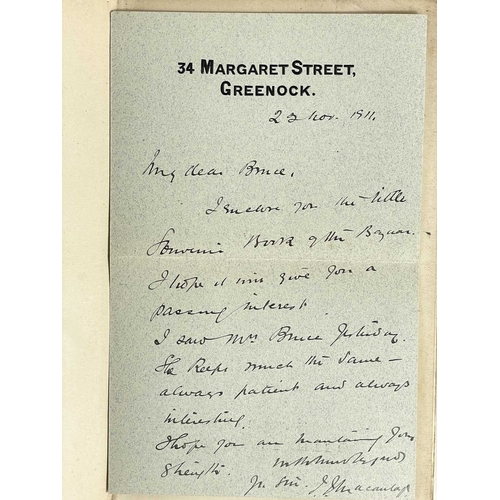 34 MARGARET STREET,
GREENOCK.
23 Nov. 1911.
My dear Bruce,
I enclose for you the little
Souvenir Book of the Bazaar.
I hope it will give you a
passing interest.
I saw Mrs Bruce yesterday.
She keeps much the same –
always patient and always
interesting.
I hope you are maintaining your
strength. With kind regards
Yr. Sin.